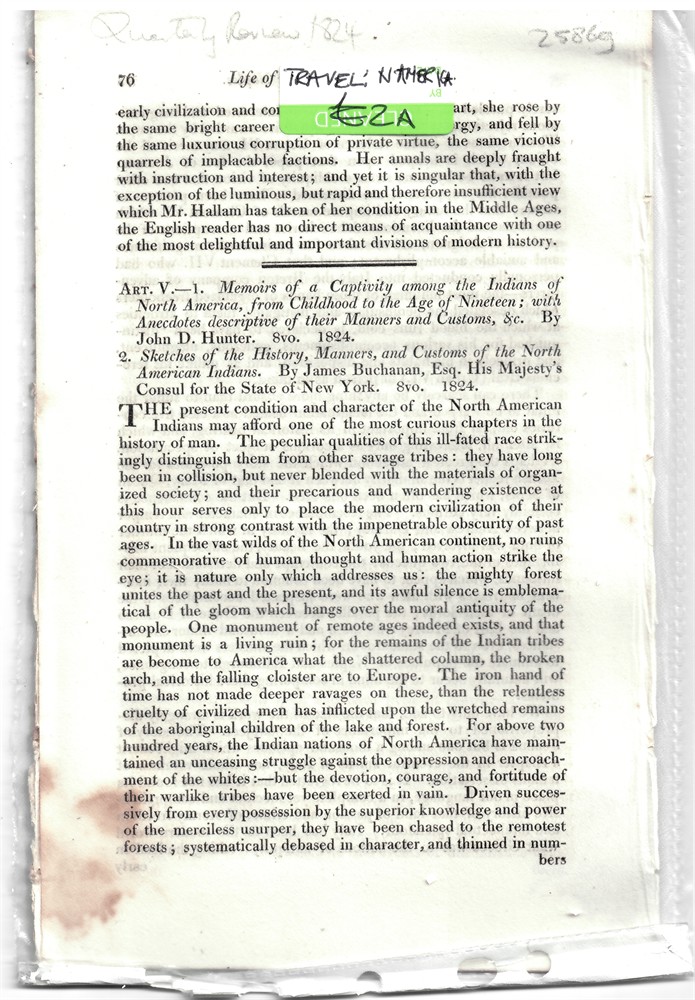 Quarterly Review 1824.
76 Life of TRAVEL: N AMERICA
early civilization and art, she rose by
the same bright career and fell by
the same luxurious corruption of private virtue, the same vicious
quarrels of implacable factions. Her annals are deeply fraught
with instruction and interest; and yet it is singular that, with the
exception of the luminous, but rapid and therefore insufficient view
which Mr. Hallam has taken of her condition in the Middle Ages,
the English reader has no direct means of acquaintance with one
of the most delightful and important divisions of modern history.
ART. V.—1. Memoirs of a Captivity among the Indians of
North America, from Childhood to the Age of Nineteen; with
Anecdotes descriptive of their Manners and Customs, &c. By
John D. Hunter. 8vo. 1824.
2. Sketches of the History, Manners, and Customs of the North
American Indians. By James Buchanan, Esq. His Majesty's
Consul for the State of New York. 8vo. 1824.
THE present condition and character of the North American
Indians may afford one of the most curious chapters in the
history of man. The peculiar qualities of this ill-fated race strik-
ingly distinguish them from other savage tribes: they have long
been in collision, but never blended with the materials of organ-
ized society; and their precarious and wandering existence at
this hour serves only to place the modern civilization of their
country in strong contrast with the impenetrable obscurity of past
ages. In the vast wilds of the North American continent, no ruins
commemorative of human thought and human action strike the
eye; it is nature only which addresses us: the mighty forest
unites the past and the present, and its awful silence is emblema-
tical of the gloom which hangs over the moral antiquity of the
people. One monument of remote ages indeed exists, and that
monument is a living ruin; for the remains of the Indian tribes
are become to America what the shattered column, the broken
arch, and the falling cloister are to Europe. The iron hand of
time has not made deeper ravages on these, than the relentless
cruelty of civilized men has inflicted upon the wretched remains
of the aboriginal children of the lake and forest. For above two
hundred years, the Indian nations of North America have main-
tained an unceasing struggle against the oppression and encroach-
ment of the whites:—but the devotion, courage, and fortitude of
their warlike tribes have been exerted in vain. Driven succes-
sively from every possession by the superior knowledge and power
of the merciless usurper, they have been chased to the remotest
forests; systematically debased in character, and thinned in num-
bers